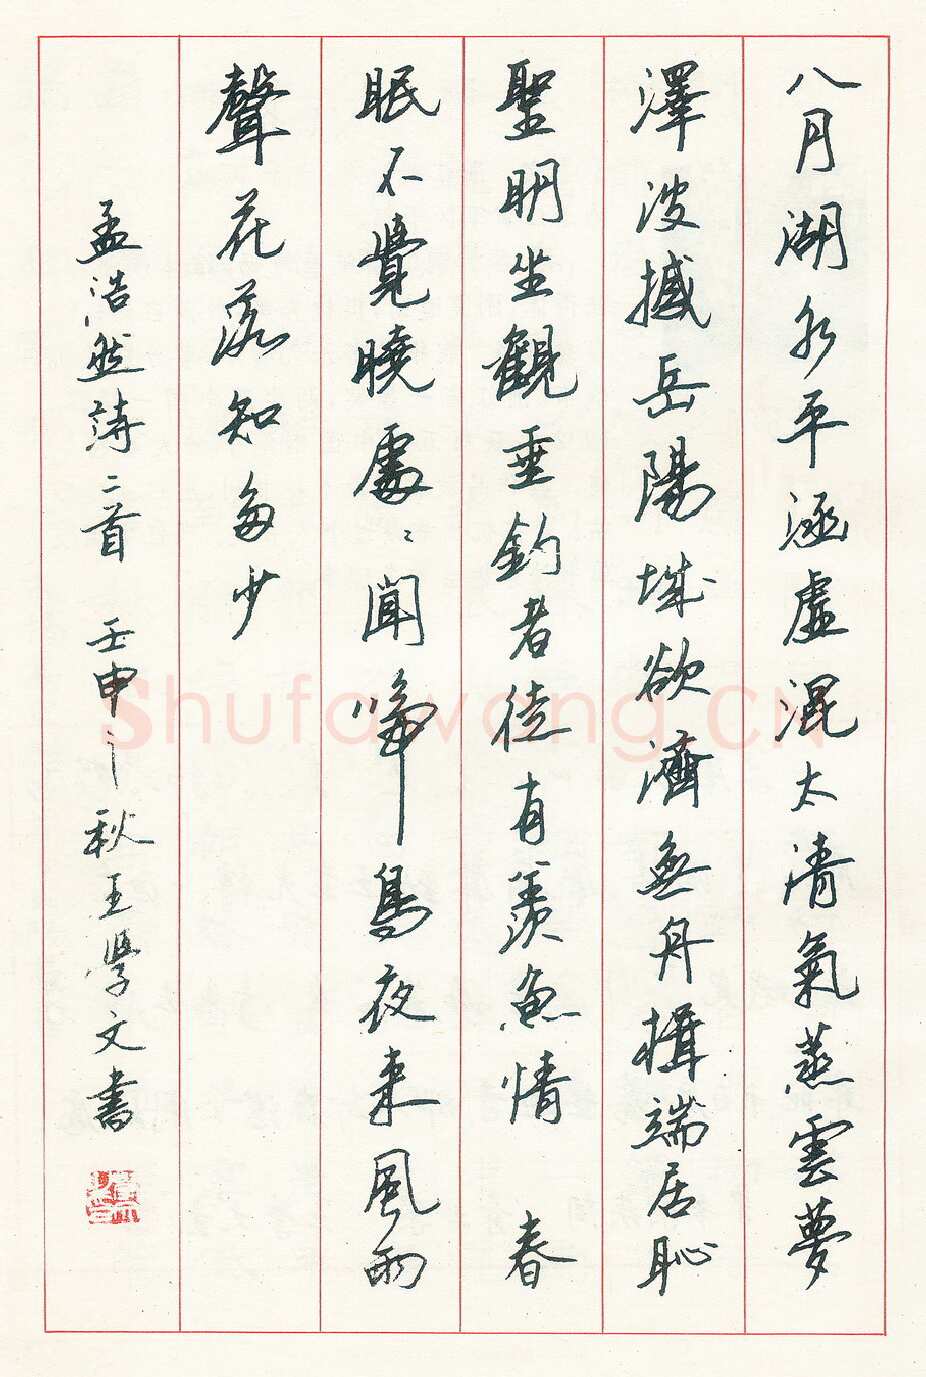 八月湖水平涵虛混太清氣蒸雲夢
澤波撼岳陽城欲濟無舟楫端居恥
聖明坐觀垂釣者徒有羨魚情 春
眠不覺曉處〻聞啼鳥夜來風雨
聲花落知多少
孟浩然詩二首 壬申之秋王學文書
Shufawang.CN